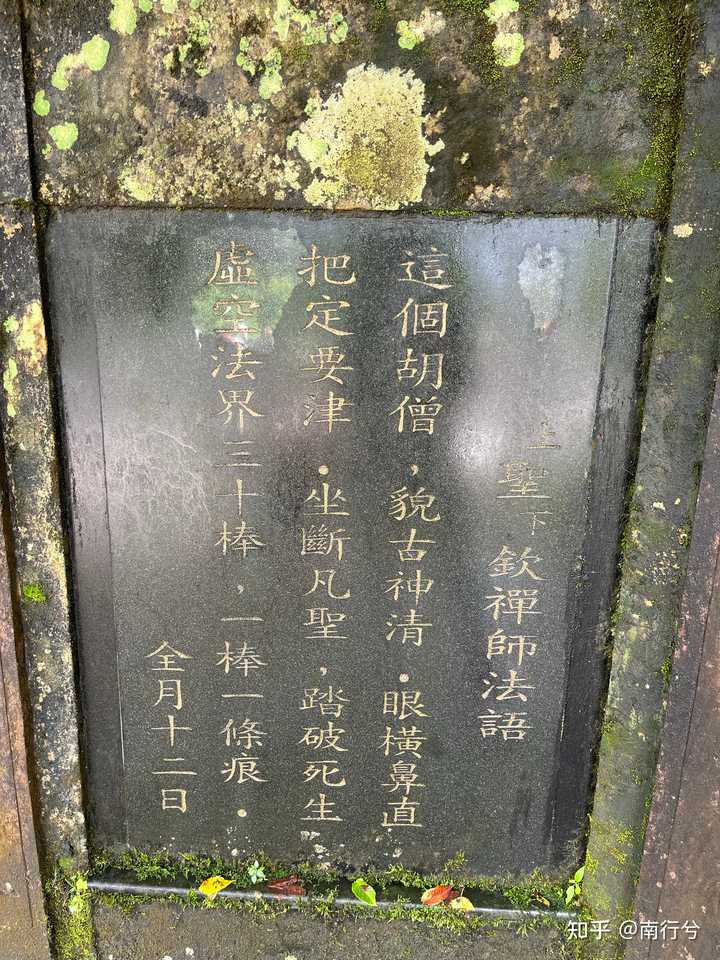 上聖下欽禪師法語
這個胡僧，貌古神清．眼橫鼻直
把定要津．坐斷凡聖，踏破死生
虛空法界三十棒，一棒一條痕．
全月十二日
知乎 @南行兮